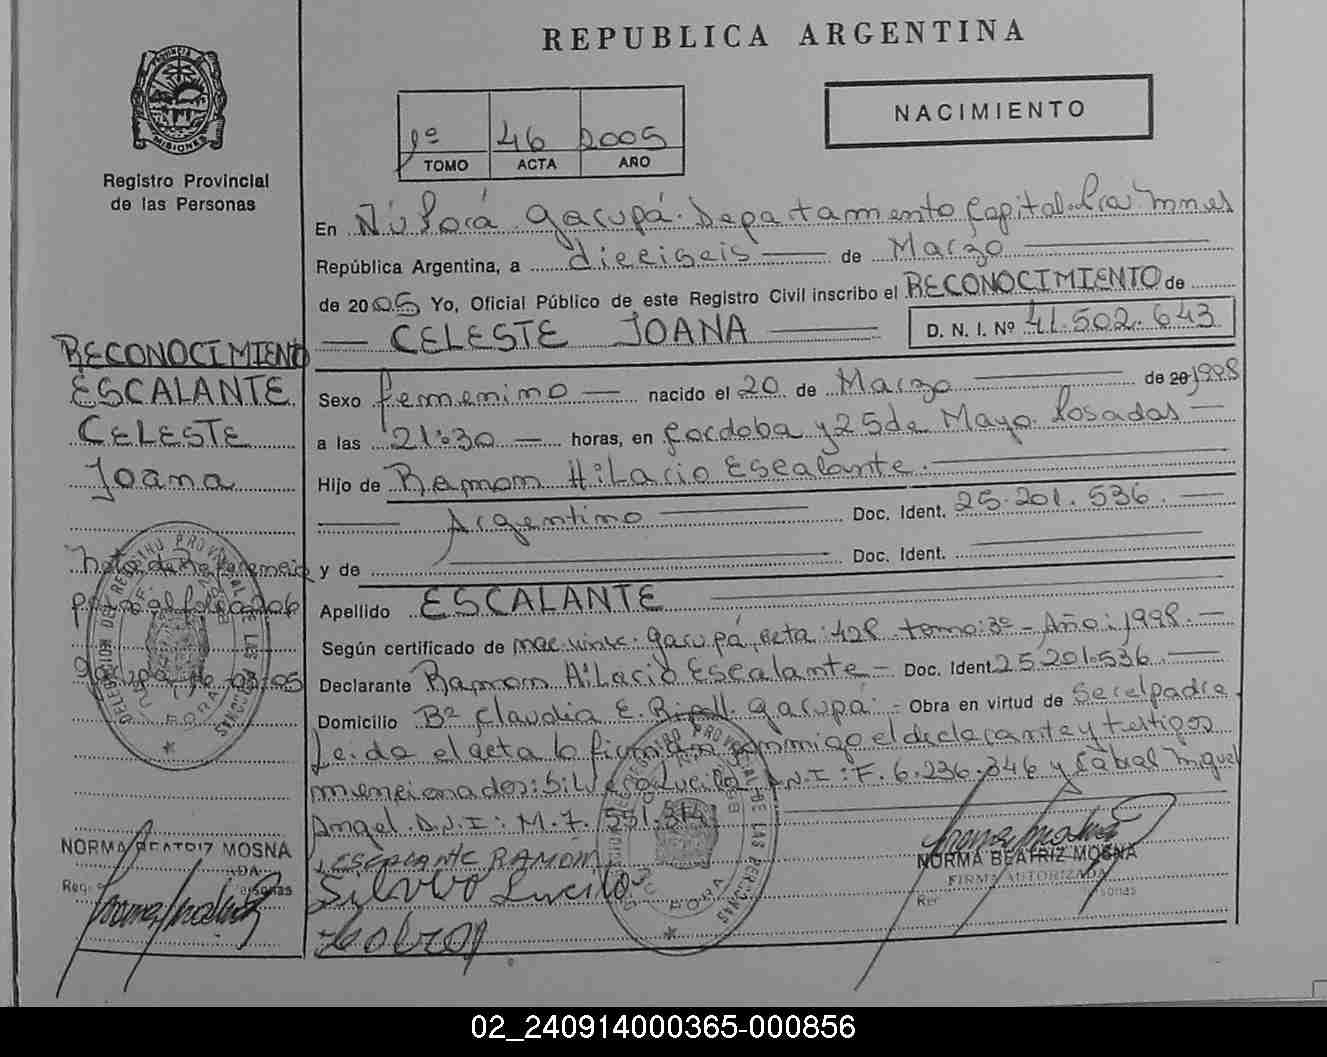 REPUBLICA ARGENTINA
NACIMIENTO
1º 46 2005
TOMO ACTA AÑO
PROVINCIA DE
MISIONES
Registro Provincial
de las Personas
En Ñu Porá Garupá. Departamento Capital. Mnes
República Argentina, a dieciseis de Marzo
de 2005 Yo, Oficial Público de este Registro Civil inscribo el RECONOCIMIENTO de
CELESTE JOANA D. N. I. Nº 41.502.643
Sexo femenino nacido el 20 de Marzo de 20 1998
a las 21:30 horas, en Cordoba y 25 de Mayo. Posadas
Hijo de Ramon Hilario Escalante.
Argentino Doc. Ident. 25.201.536.
y de Doc. Ident.
Apellido ESCALANTE
Según certificado de Garupá, acta: 428 tomo: 3º - Año: 1998.
Declarante Ramon Hilario Escalante - Doc. Ident. 25.201.536.
Domicilio Bº Claudia E. Ripoll. Garupá - Obra en virtud de ser el padre.
Leida el acta la firman conmigo el declarante y testigos
mencionados: Silvero Lucila D.N.I: F. 6.236.346 y Cabral Miguel
Angel. D.N.I: M. 7. 551.314
ESCALANTE RAMON
Silvero Lucila
Cabral
NORMA BEATRIZ MOSNA
FIRMA AUTORIZADA
RECONOCIMIENTO
ESCALANTE
CELESTE
Joana
Nota de Referencia
NORMA BEATRIZ MOSNA
02_240914000365-000856